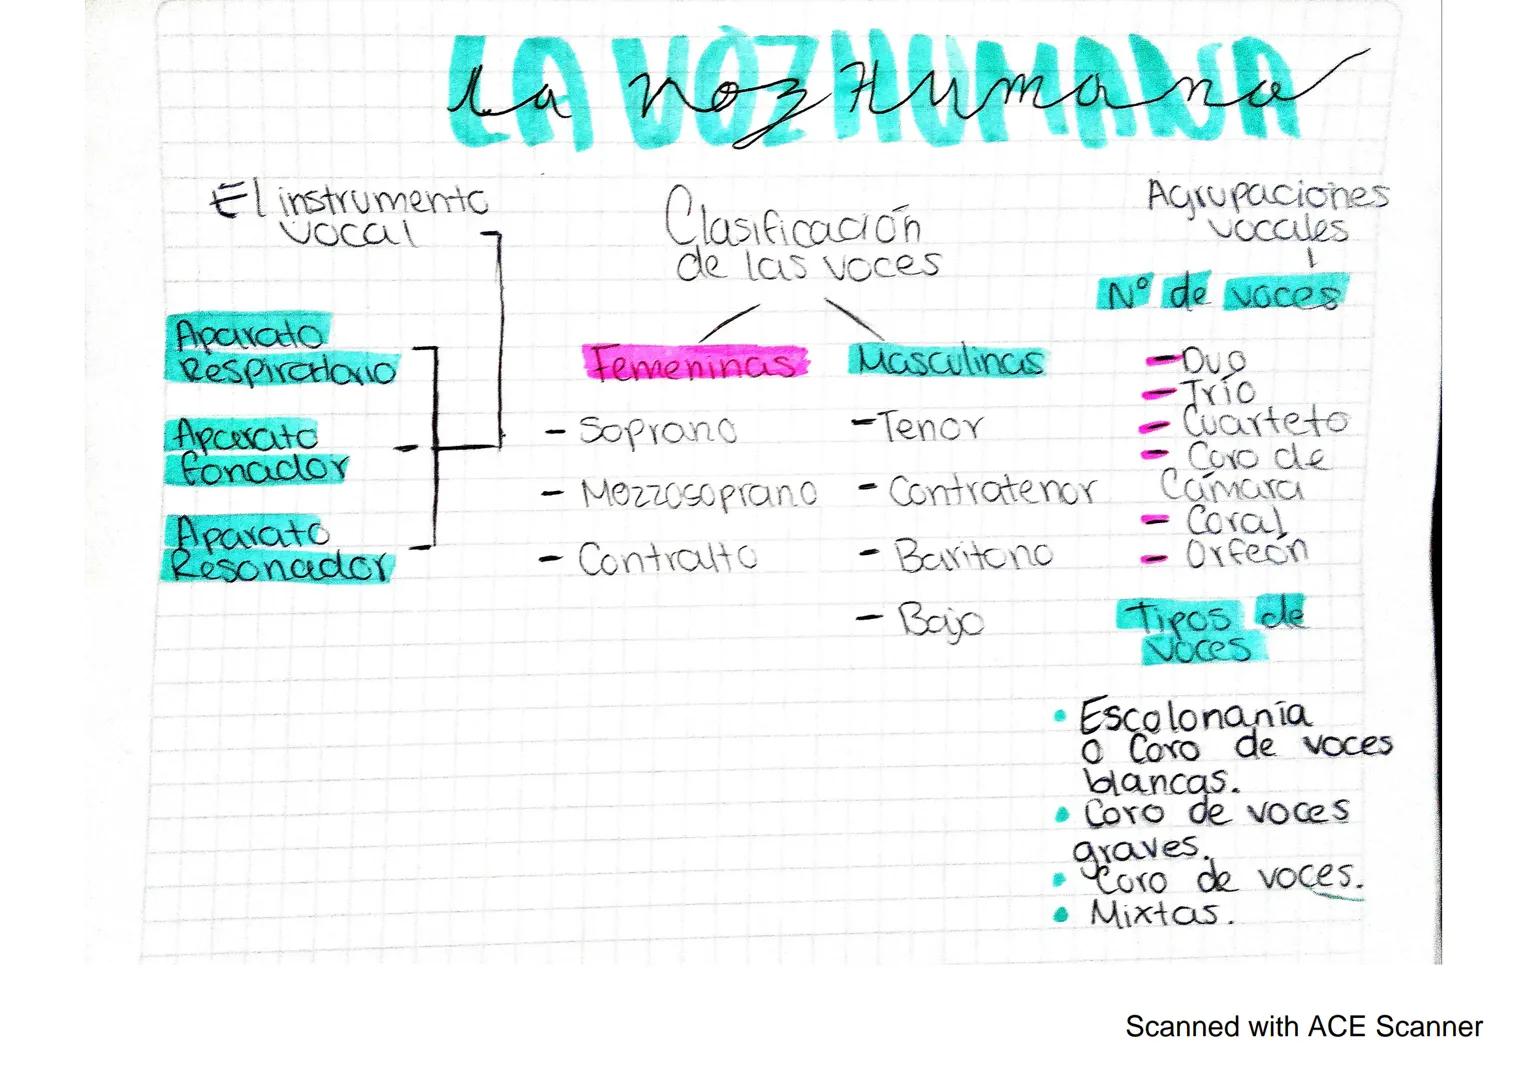 LA VOZ HUMANA
La voz Humana
El instrumento
vocal
Aparato
Respiratorio
Aparato
fonador
Aparato
Resonador
Clasificación
de las voces
Femeninas
- Soprano
- Mezzosoprano
- Contralto
Masculinas
- Tenor
- Contratenor
- Baritono
- Bajo
Agrupaciones
vocales
Nº de voces
- Duo
- Trío
- Cuarteto
- Coro de
Cámara
- Coral
- Orfeón
Tipos de
voces
• Escolonanía
o Coro de voces
blancas.
• Coro de voces
graves.
• Coro de voces.
• Mixtas.
Scanned with ACE Scanner